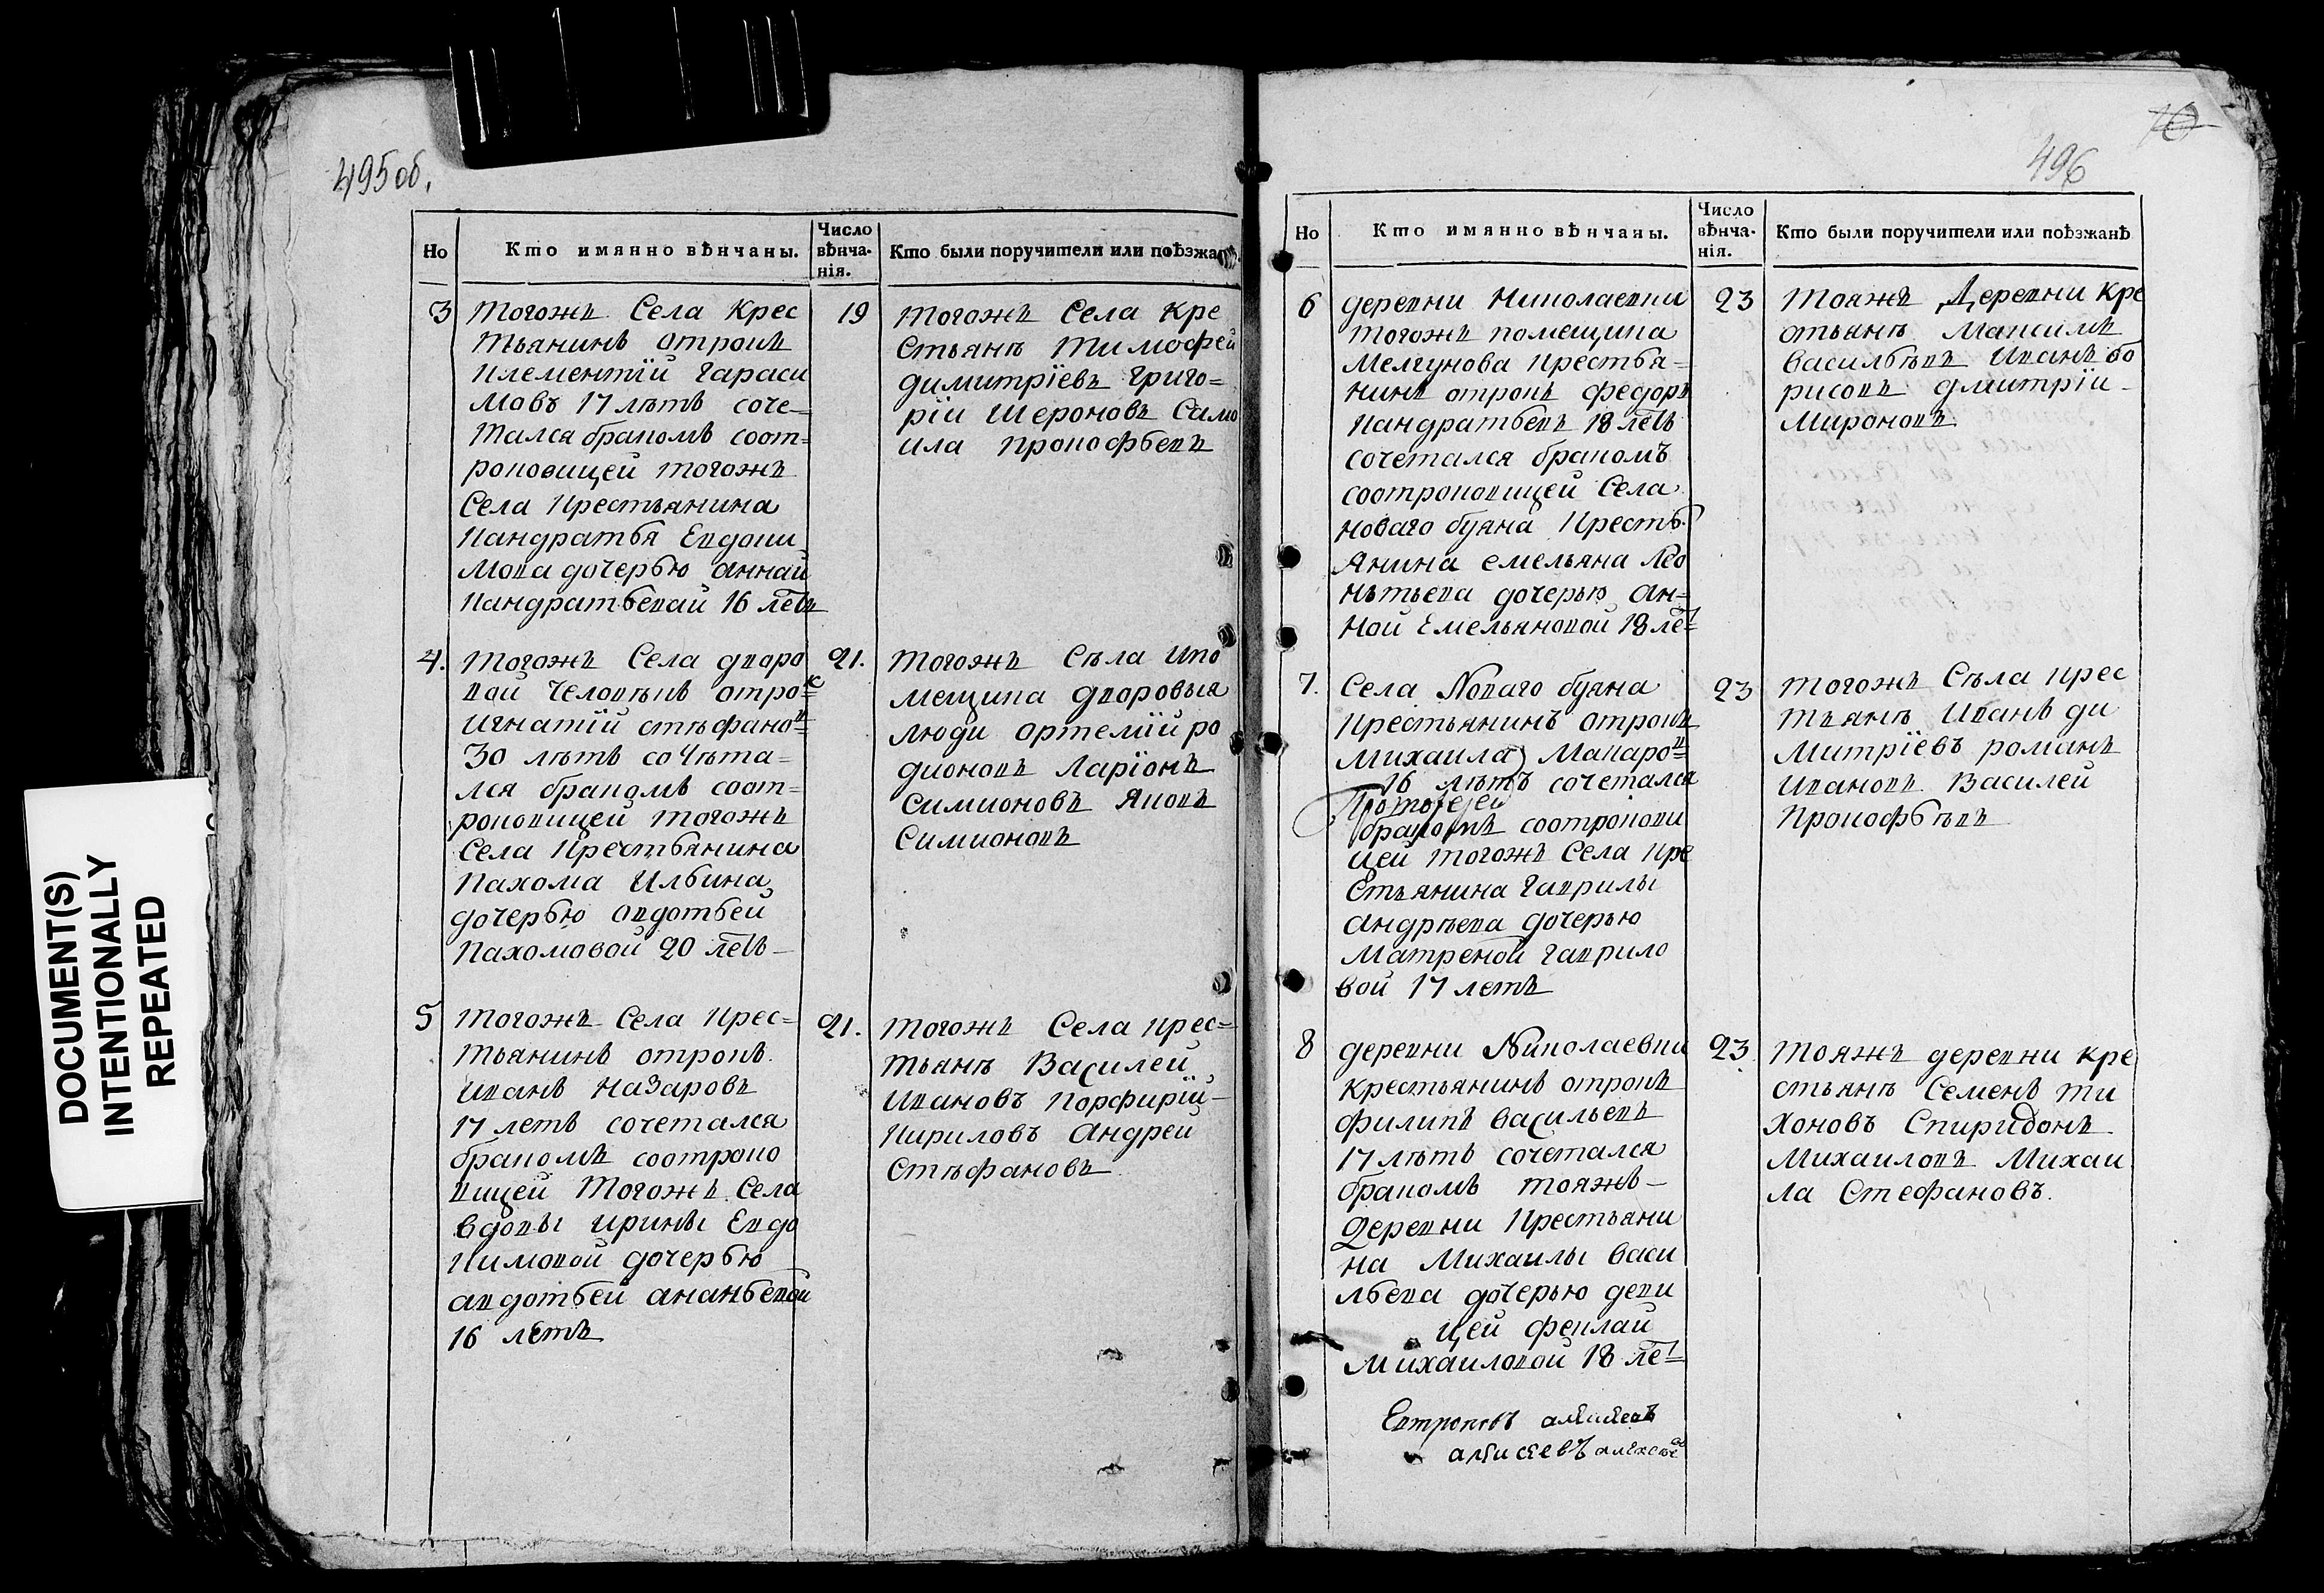 495 об.
Но
Кто имянно вѣнчаны.
Число вѣнча-нія.
Кто были поручители или поѣзжа
3
Тогожъ Села Крес
тьянинъ отрокъ
Клементїй Гараси
мовъ 17 лѣтъ соче-
тался бракомъ соот=
роковицей тогожъ
Села Крестьянина
Кандратья Евдоки
мова дочерью Аннай
Кандратьевай 16 летъ
19
тогожъ Села Кре
стьянъ Тимофей
Димитрїевъ Григо=
рїй Шероновъ Само
ила Прокофьевъ
4.
Тогожъ Села дваро
вой человѣкъ отрок
Игнатїй Стѣфанов
30 лѣтъ сочѣта=
лся бракомъ соот=
роковицей тогожъ
Села Крестьянина
Пахома Ильина
дочерью Авдотьей
Пахомовой 20 летъ
21.
тогожъ Сѣла и по
мещика дворовыя
люди Ортемїй Ро
дионовъ Ларїонъ
Симионовъ Яковъ
Симионовъ
5
Тогожъ Села Крес=
тьянинъ отрокъ
Иванъ Назаровъ
17 летъ сочетался
бракомъ соотроко
вицей тогожъ Села
вдовы Ирины Евдо
кимовой дочерью
Авдотьей Ананьевой
16 летъ
21.
тогожъ Села Крес=
тьянъ Василей
Ивановъ Порфирїй
Кириловъ Андрей
Стѣфановъ
10
496
Но
Кто имянно вѣнчаны.
Число вѣнча-нія.
Кто были поручители или поѣзжанѣ
6
деревни Николаевки
тогожъ помещика
Мелгунова Крестья=
нинъ отрокъ Федоръ
Кандратьевъ 18 летъ
сочетался бракомъ
соотроковицей Села
Новаго буяна Кресть
янина Емельяна Лео
нтьева дочерью Ан=
ной Емельяновой 18 ле
23
тояжъ Деревни Кре
стьянъ Максимъ
Васильевъ Иванъ Бо
рисовъ Дмитрїй
Мироновъ
7.
Села Новаго буяна
Крестьянинъ отрокъ
Михаила Макаров
16 лѣтъ сочетался
Протоїерей
бракомъ соотрокови
цей тогожъ Села Кре
стьянина Гаврилы
Андрѣева дочерью
Матреной Гаврило
вой 17 летъ
23
тогожъ Сѣла Крес
тьянъ Иванъ Ди
митрїевъ Романъ
Ивановъ Василей
Прокофьѣвъ
8
деревни Николаевки
Крестьянинъ отрокъ
Филипъ Васильевъ
17 лѣтъ сочетался
бракомъ тояжъ
Деревни Крестьяни
на Михаилы Васи
льева дочерью деви
цей Феклай
Михаиловой 18 ле
23.
тояжъ деревни Кре
стьянъ Семенъ Ти
хоновъ Спиридонъ
Михаиловъ Михаи
ла Стефановъ.
DOCUMENT(S)
INTENTIONALLY
REPEATED